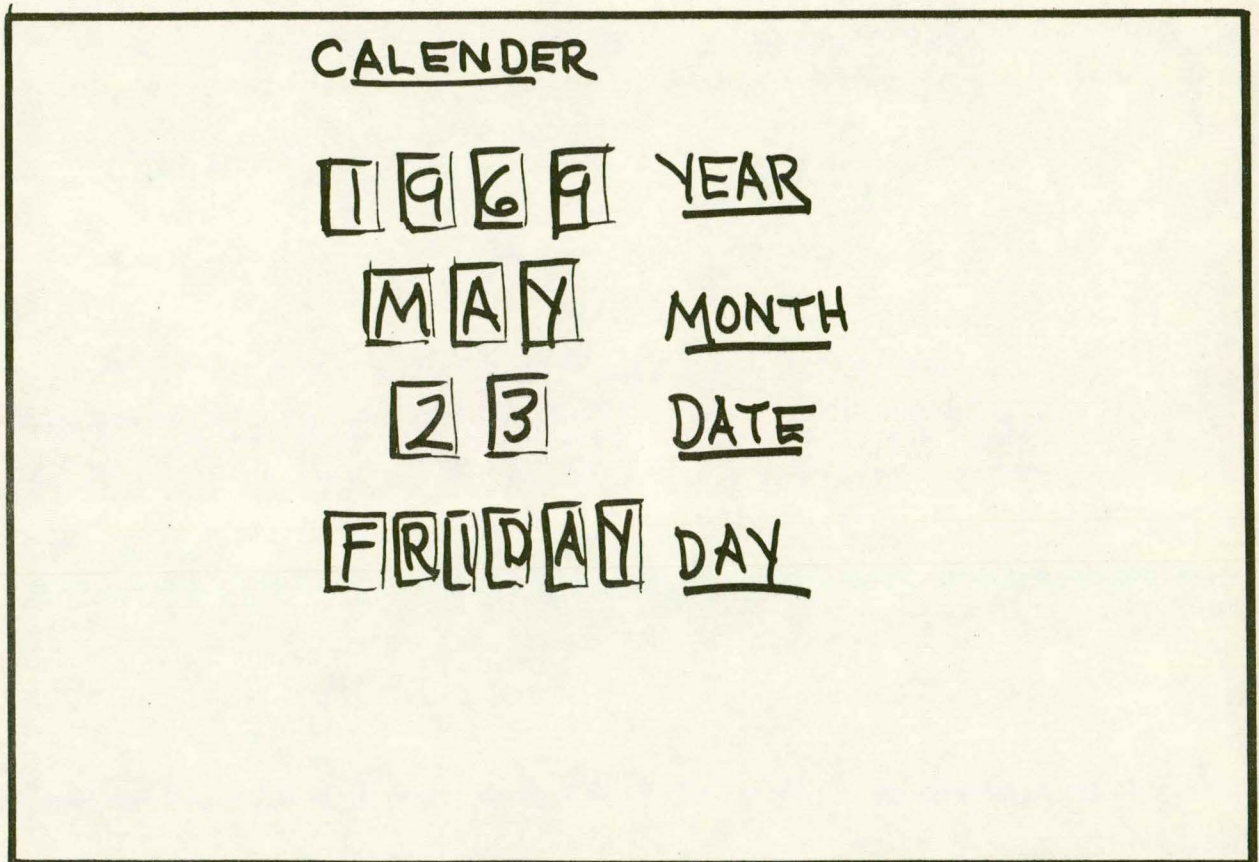 CALENDER
1969 YEAR
MAY MONTH
23 DATE
FRIDAY DAY